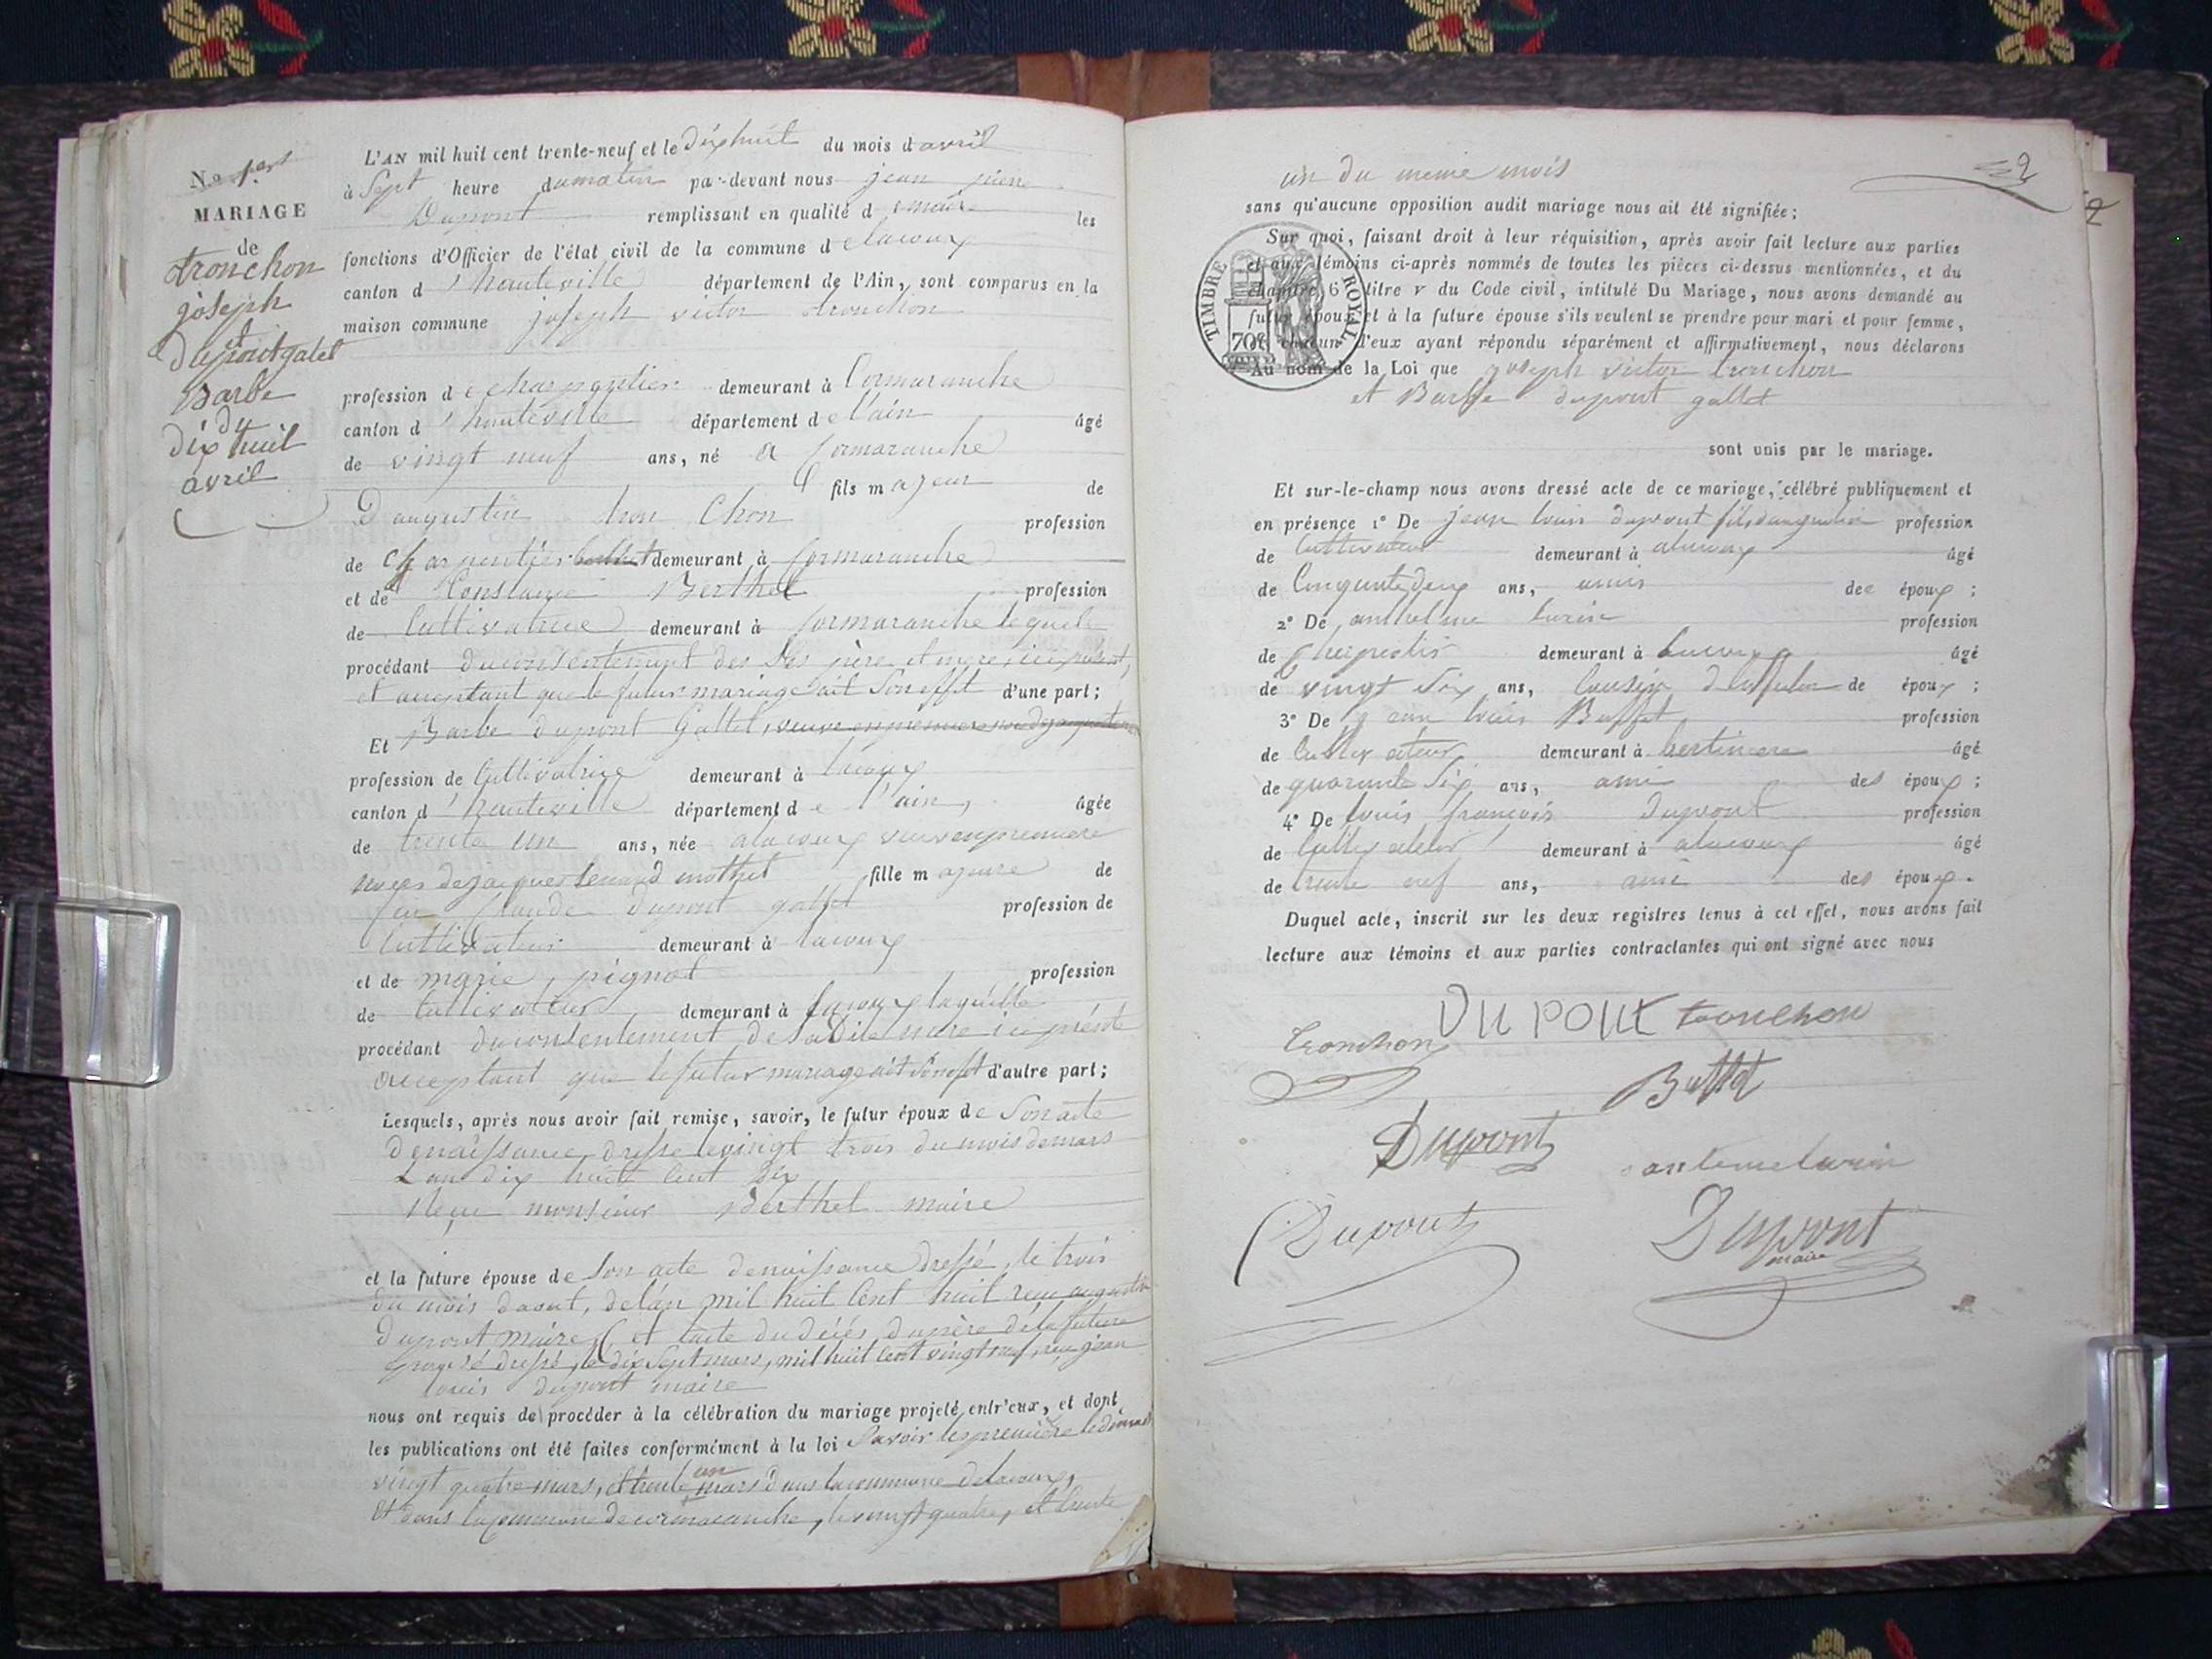 No 1er
MARIAGE
de
tronchon
joseph
et
dupont gallet
Barbe
du
dix huit
avril
L'AN mil huit cent trente-neuf et le dix huit du mois d avril
à Sept heure du matin par-devant nous jean pierre
Dupont remplissant en qualité d maire les
fonctions d'Officier de l'état civil de la commune d elacoux
canton d'hauteville département de l'Ain, sont comparus en la
maison commune joseph victor tronchon
profession de charpentier demeurant à Cormaranche
canton d'hauteville département de l'ain âgé
de vingt neuf ans, né a Cormaranche
fils majeur de
D augustin tron Chon profession
de charpentier demeurant à Cormaranche
et de Constance Berthet profession
de Cultivatrice demeurant à Cormaranche lequele
procédant du consentement des Ses père et mere ici présent,
et acceptant que le futur mariage ait Son effet d'une part;
Et Barbe dupont Gallet, veuve en premiere
profession de Cultivatrice demeurant à lacoux
canton d'hauteville département de l'ain, âgée
de trente un ans, née alacoux veuve en premiere
noces de jacques mothet fille majeure de
feu Claude dupont gallet profession de
Cultivateur demeurant à lacoux
et de marie, pignot profession
de Cultivateur demeurant à lacoux laquelle
procédant du consentement de Sadite mere ici présente
acceptant que le futur mariage ait Son effet d'autre part;
Lesquels, après nous avoir fait remise, savoir, le futur époux de Son acte
de naissance dressé le vingt trois du mois de mars
L'an dix huit Cent dix
Reçu monsieur Berthet maire
et la future épouse de Son acte de naissance dressé, le trois
du mois daout, de lan mil huit Cent huit reçu augustin
Dupont maire, et l'acte du décés du père de la future
dressé, le dix Sept mars, mil huit Cent vingt neuf, reçu jean
louis dupont maire
nous ont requis de procéder à la célébration du mariage projeté entr'eux, et dont
les publications ont été faites conformément à la loi Savoir les premiere
vingt quatre mars, et trente un mars dans la commune delacoux,
et dans la commune de cormaranche, le vingt quatre, et trente
2
un du meme mois
sans qu'aucune opposition audit mariage nous ait été signifiée;
Sur quoi, faisant droit à leur réquisition, après avoir fait lecture aux parties
et aux témoins ci-après nommés de toutes les pièces ci-dessus mentionnées, et du
chapitre 6 titre v du Code civil, intitulé Du Mariage, nous avons demandé au
futur époux et à la future épouse s'ils veulent se prendre pour mari et pour femme,
chacun d'eux ayant répondu séparément et affirmativement, nous déclarons
Au nom de la Loi que joseph victor tronchon
et Barbe dupont gallet
TIMBRE ROYAL
70c
sont unis par le mariage.
Et sur-le-champ nous avons dressé acte de ce mariage, célébré publiquement et
en présence 1° De jean louis dupont fils daugustin profession
de Cultivateur demeurant à alacoux âgé
de Cinquante deux ans, amis des époux;
2° De anthelme lurin profession
de demeurant à lacoux âgé
de vingt Six ans, Cousin de époux;
3° De jean louis Buffet profession
de Cultivateur demeurant à âgé
de quarante Six ans, ami des époux;
4° De louis françois dupont profession
de Cultivateur demeurant à alacoux âgé
de trente neuf ans, ami des époux.
Duquel acte, inscrit sur les deux registres tenus à cet effet, nous avons fait
lecture aux témoins et aux parties contractantes qui ont signé avec nous
DUPONT tronchon
Tronchon
Buffet
Dupont
antelme lurin
Dupont
Dupont
maire